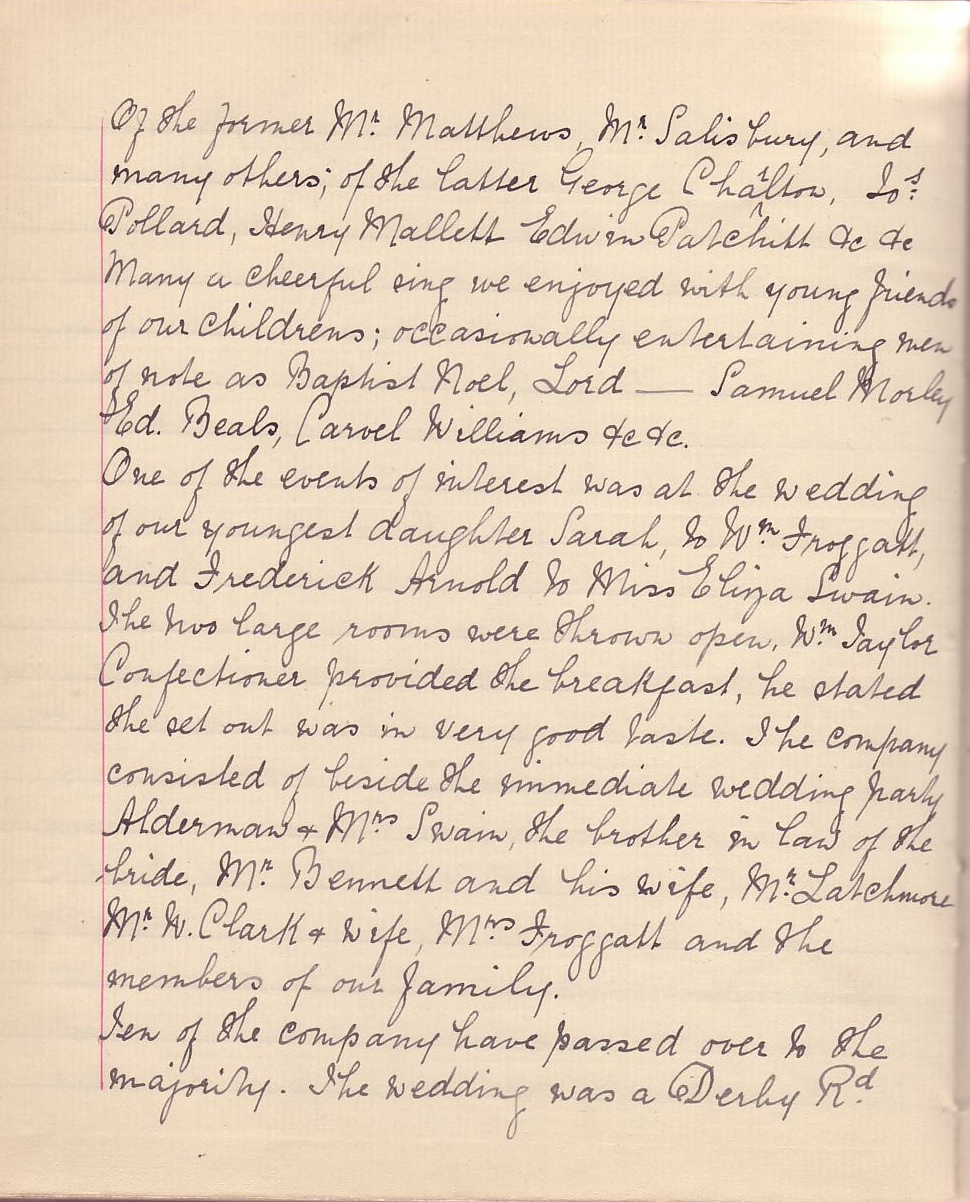 Of the former Mr. Matthews, Mr. Salisbury, and
many others; of the latter George Charlton, Jos.
Pollard, Henry Mallett Edwin Patchitt &c &c
Many a cheerful sing we enjoyed with young friends
of our childrens; occasionally entertaining men
of note as Baptist Noel, Lord — Samuel Morley
Ed. Beals, Carvel Williams &c &c.
One of the events of interest was at the wedding
of our youngest daughter Sarah, to Wm Froggatt,
and Frederick Arnold to Miss Eliza Swain.
The two large rooms were thrown open. Wm Taylor
Confectioner provided the breakfast, he stated
the set out was in very good taste. The company
consisted of beside the immediate wedding party
Alderman & Mrs Swain, the brother in law of the
bride, Mr. Bennett and his wife, Mr. Latchmore
Mr. W. Clark & wife, Mrs Froggatt and the
members of our family.
Ten of the company have passed over to the
majority. The wedding was a Derby Rd